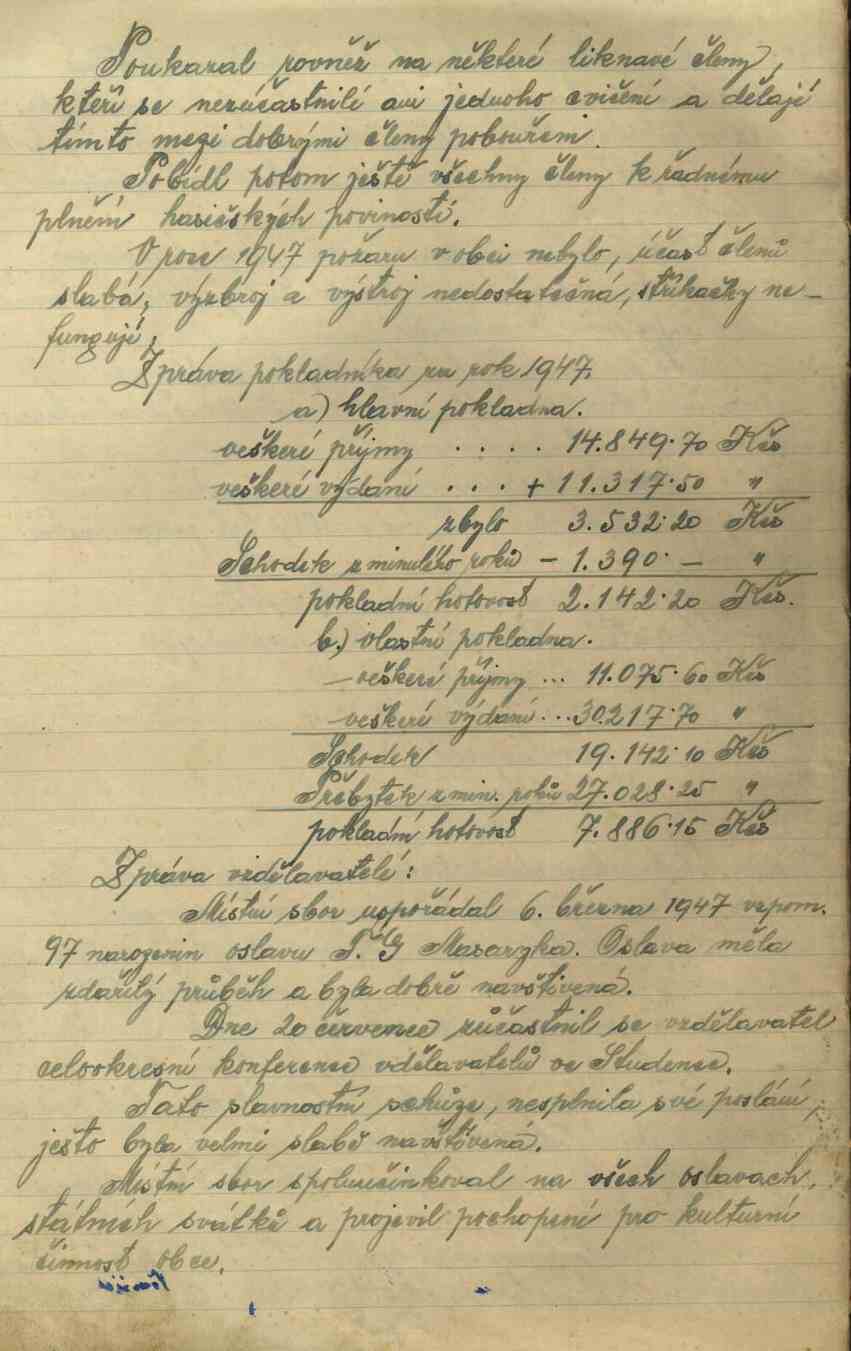 Poukazal rovněž na některé liknavé členy,
kteří se nezúčastnili ani jednoho cvičení a dělají
tímto mezi dobrými členy pobouření.
Pobídl potom ještě všechny členy k řádnému
plnění hasičských poviností.
V roce 1947 požaru v obci nebylo, účast členů
slabá, výzbroj a výstroj nedostatečná, stříkačky ne-
fungují.
Zpráva pokladníka za rok 1947.
a) hlavní pokladna.
veškeré příjmy . . . . 14.849·70 Kčs
veškeré vydaní . . . + 11.317·50 "
zbylo 3.532·20 Kčs
Schodek z minulého roků – 1.390· — "
pokladní hotovost 2.142·20 Kčs.
b.) vlastní pokladna.
– veškeré příjmy ... 11.075·60 Kčs
veškeré vydaní ... 30.217·70 "
Schodek 19.142·10 Kčs
Přebytek z min. roků 27.028·25 "
pokladní hotovost 7.886·15 Kčs
Zpráva vzdělavatelé:
Místní sbor uspořádal 6. března 1947 vzpom.
97 narozenin oslavu T. G Masaryka. Oslava měla
zdařilý průběh a byla dobře navštívená.
Dne 20 července zůčastnil se vzdělavatel
celookresní konference vdělavatelů ve Studence.
Tato slavnostní schůze, nesplnila své poslání,
ješto byla velmi slabě navštívená.
Místní sbor spoluučinkoval na všech oslavách,
státních svátků a projevil pochopení pro kulturní
činnost obce.